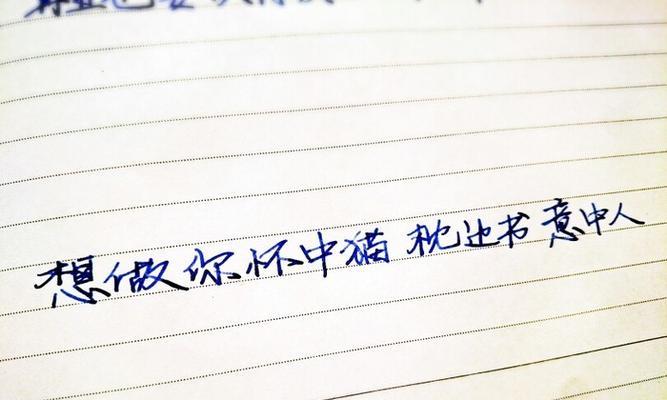 想做你怀中猫 枕边书 意中人